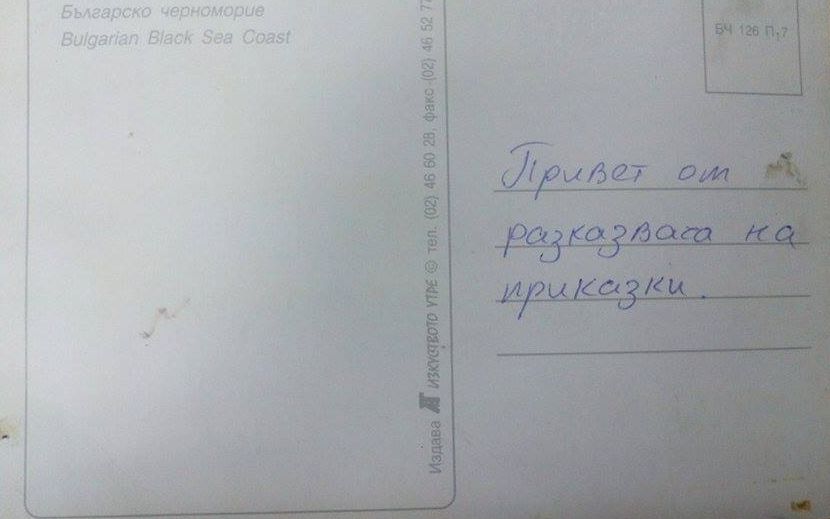 Българско черноморие
Bulgarian Black Sea Coast
Издава АТ ИЗКУСТВОТО УТРЕ © тел. (02) 46 60 28, факс (02) 46 52 77
БЧ 126 П17
Привет от
разказвача на
приказки.